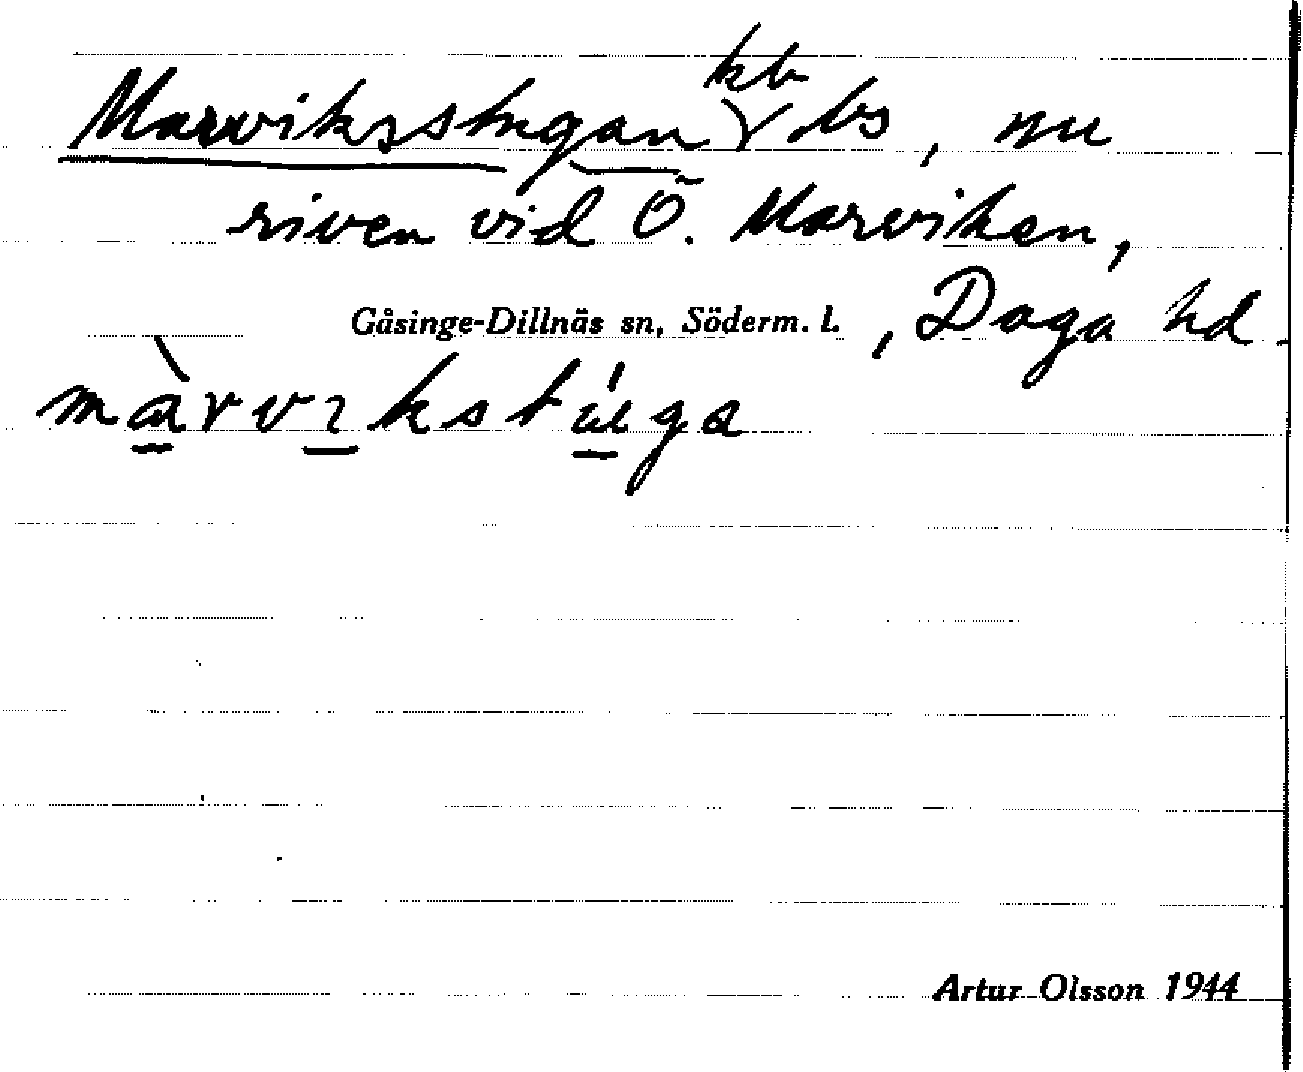 Marviksstugan kb bs, nu
riven vid Ö. Marviken,
Gåsinge-Dillnäs sn, Söderm. l., Daga hd.
màrvıkstúga
Artur Olsson 1944